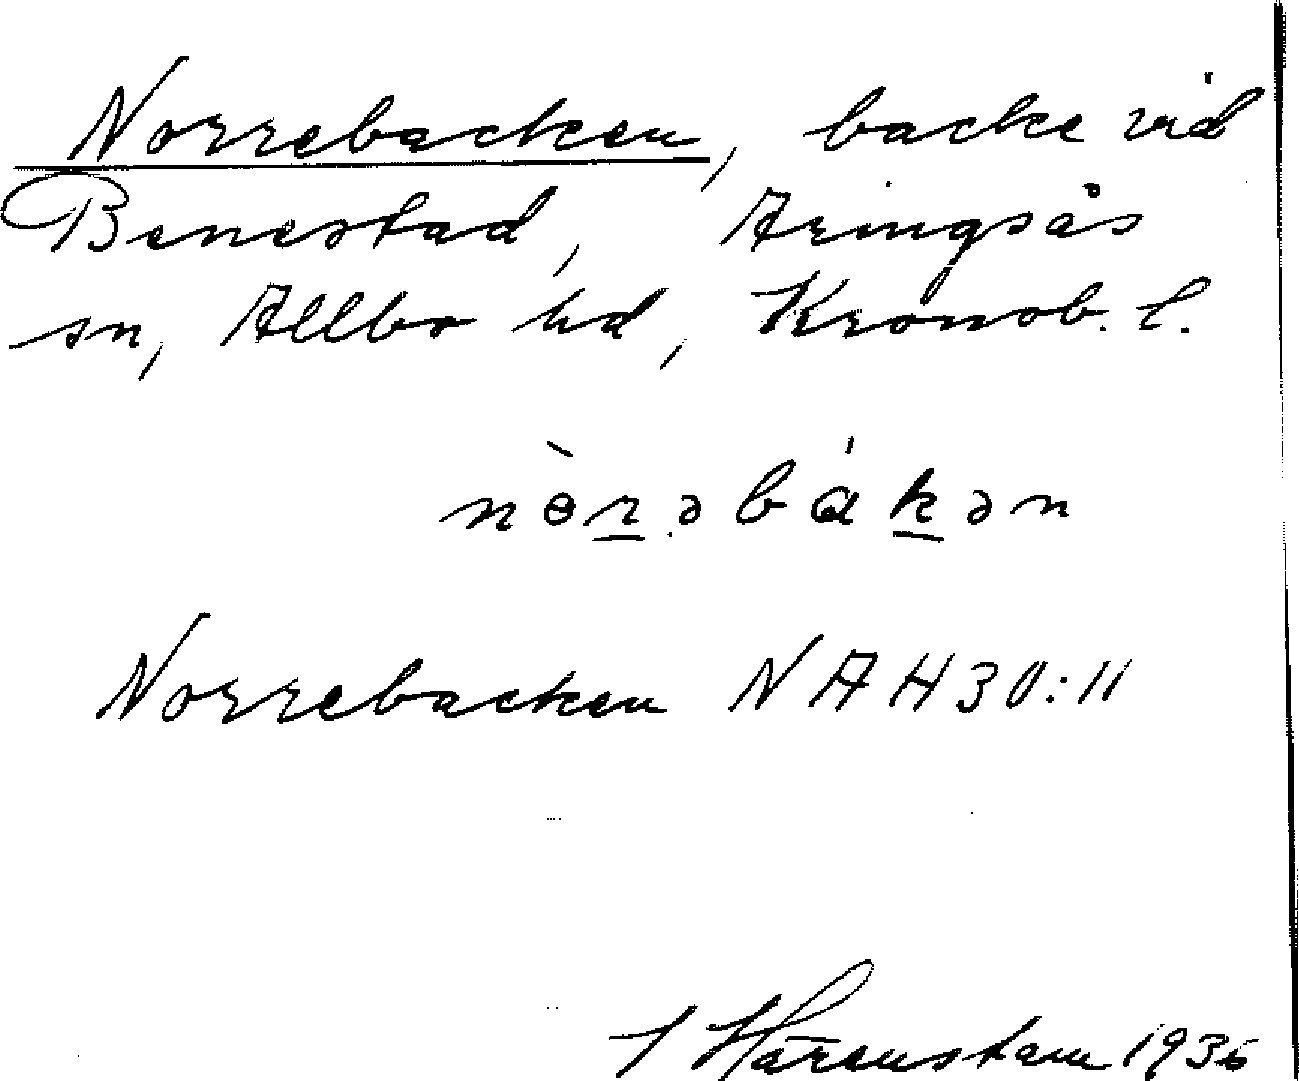 Norrebacken, backe vid
Benestad, Aringsås
sn, Allbo hd, Kronob. l.
nɵ̀r̲əbákə̲n
Norrebacken NAH30:11
Härenstam 1936